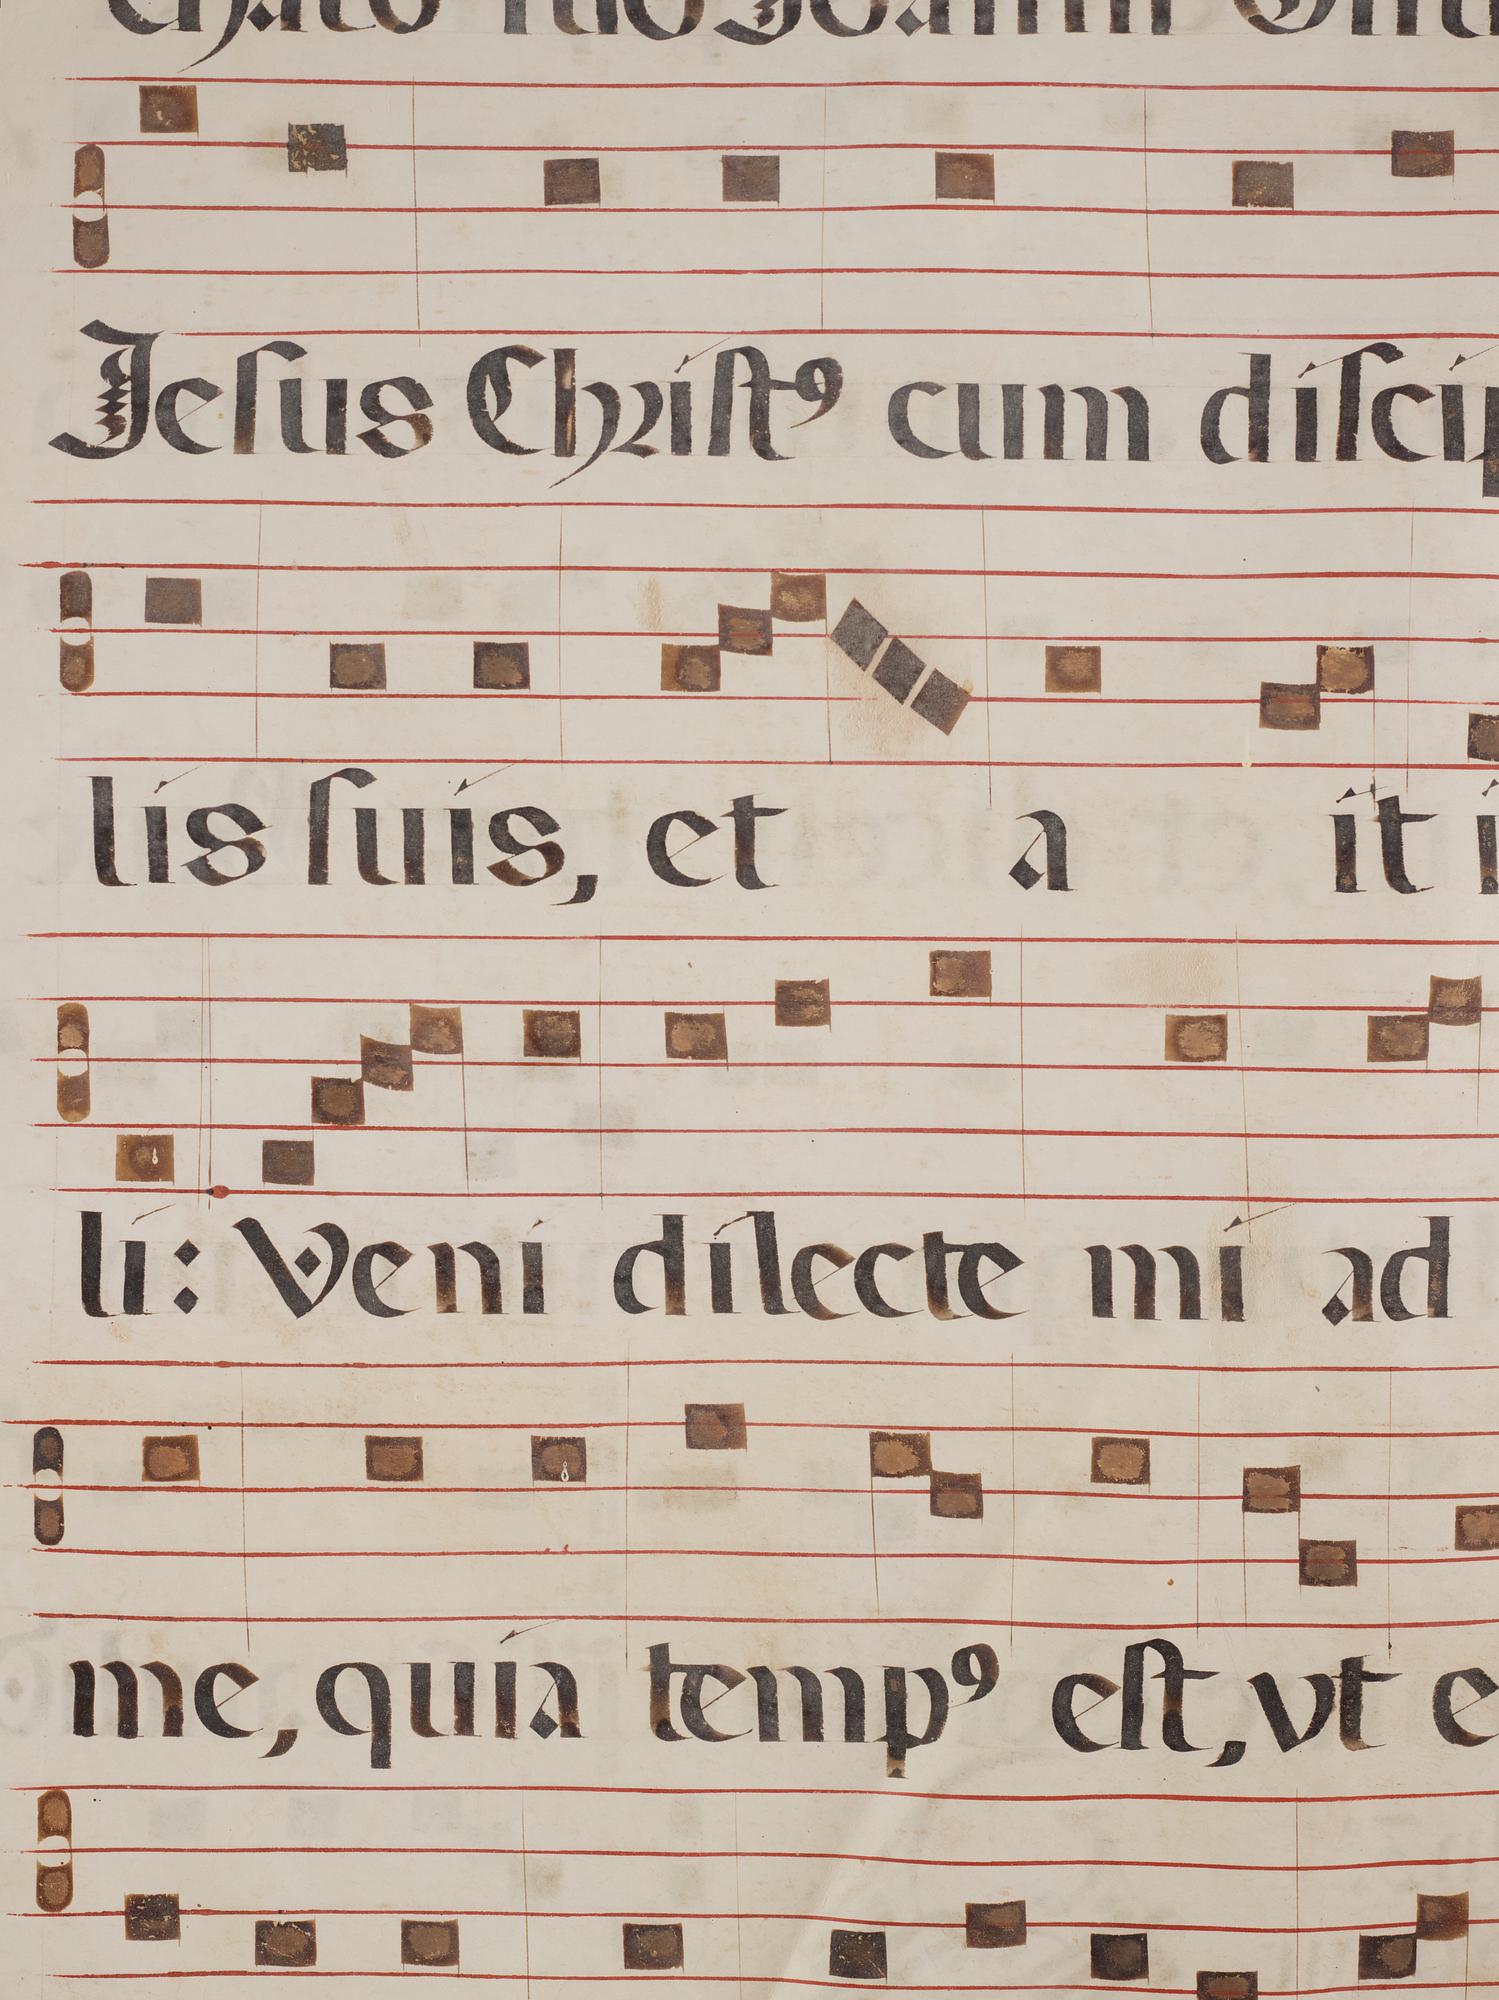 Jesus Christꝰ cum discip
lis suis, et a it i
li: Veni dilecte mi ad
me, quia tempꝰ est, vt e